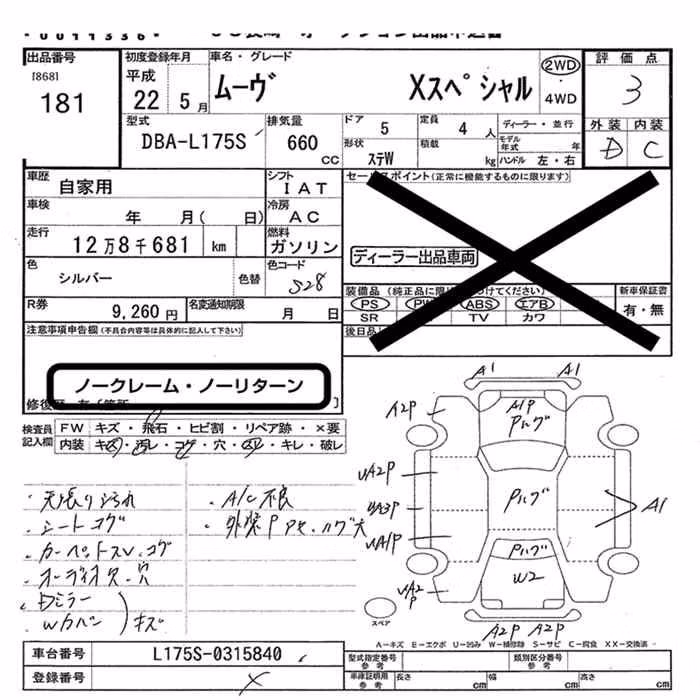 出品番号
[868]
181
初度登録年月
平成
22 5月
車名・グレード
ムーヴ Xスペシャル
2WD
・
4WD
評価点
3
外装 内装
D C
型式
DBA-L175S
排気量
660
CC
ドア 5
定員 4 人
形状 ステW
積載 kg
ディーラー・並行
モデル年式 年
ハンドル 左・右
車歴
自家用
シフト
IAT
セールスポイント(正常に機能するものに限ります)
車検
年 月( 日)
冷房
AC
走行
12万8千681 km
燃料
ガソリン
ディーラー出品車両
色
シルバー 色替
色コード
S28
装備品
PS PW ABS エアB
SR TV カワ
新車保証書
有・無
R券
9,260円
名変通知期限
月 日
後日品
注意事項申告欄(不具合内容等は具体的に記入して下さい)
ノークレーム・ノーリターン
検査員
記入欄
FW キズ・飛石・ヒビ割・リペア跡・×要
内装 キズ・汚レ・コゲ・穴・凹・キレ・破レ
・天張り汚れ
・シートコゲ
・カーペットスレ.コゲ
・オーディオ欠.穴
・Dミラー
Wカバー キズ
・A/C不良
・外装P
A1 A1
A2P
A1P
Pハゲ
UA2P
UA3P
Pハゲ
A1
UA1P
Pハゲ
W2
UA2P
A2P A2P
スペア
A-キズ E-エクボ U-凹み W-補修跡 S-サビ C-腐食 XX-交換済
車台番号
L175S-0315840
型式指定番号
参考
類別区分番号
参考
登録番号
×
車庫証明用
参考
長さ cm
幅 cm
高さ cm